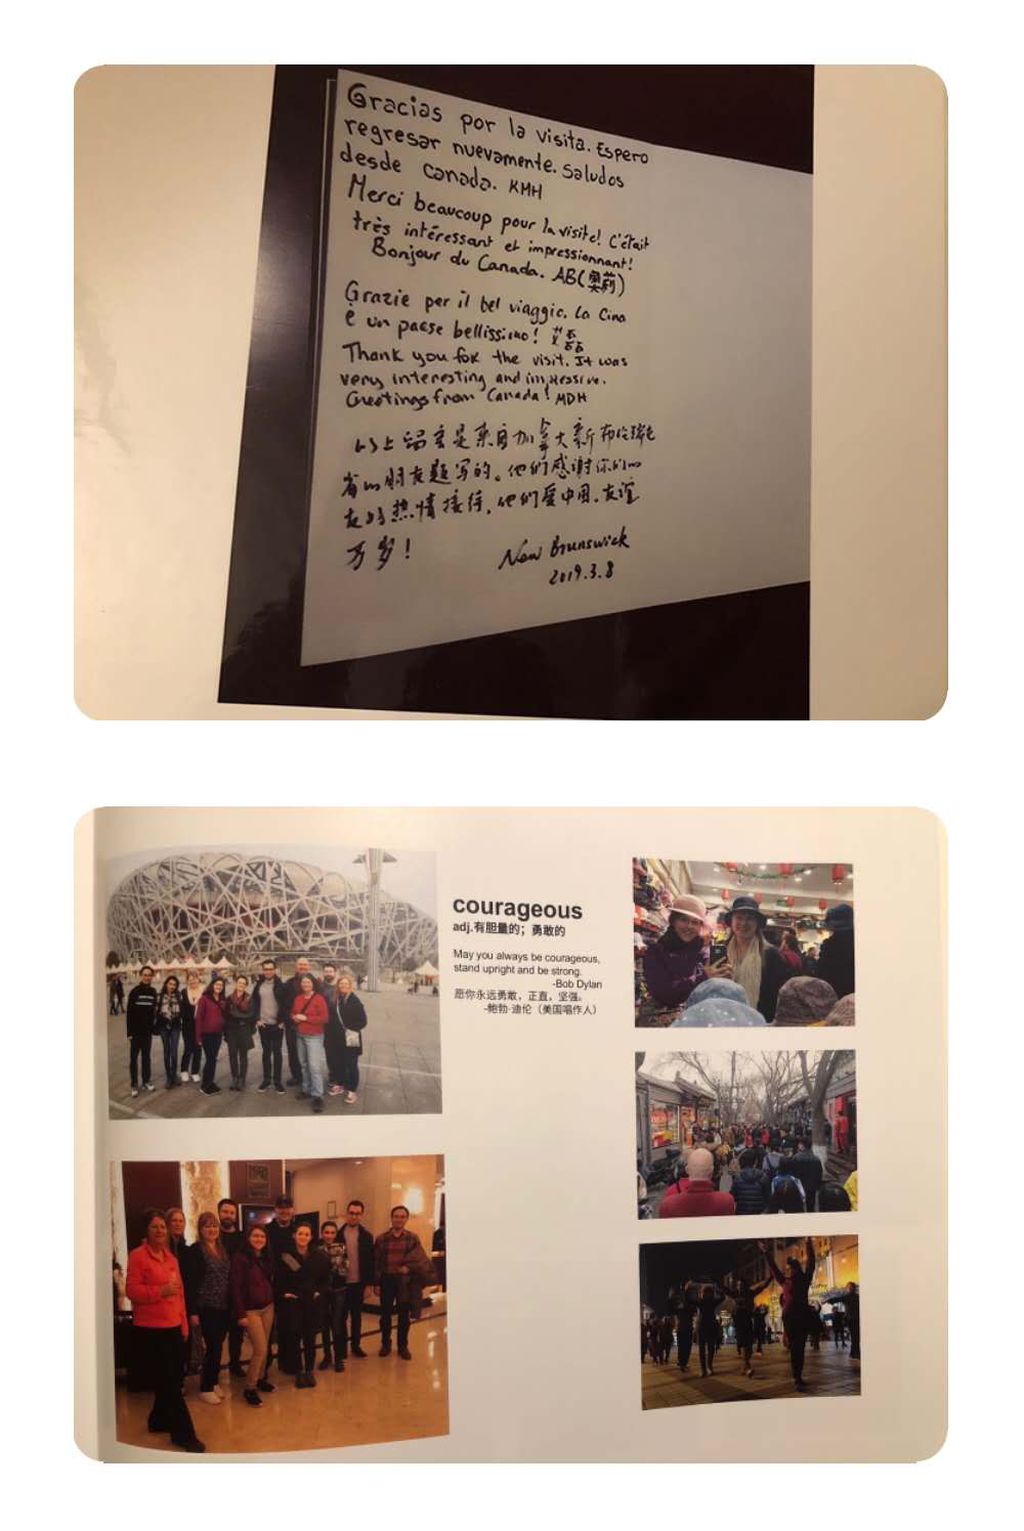 Gracias por la visita. Espero
regresar nuevamente. Saludos
desde Canada. KMH
Merci beaucoup pour la visite! C'était
très intéressant et impressionnant!
Bonjour du Canada. AB(奥莉)
Grazie per il bel viaggio. La Cina
è un paese bellissimo!
Thank you for the visit. It was
very interesting and impressive.
Greetings from Canada! MDH
以上留言是来自加拿大新布伦瑞克
省的朋友题写的。他们感谢你们的
友好热情接待,他们爱中国。友谊
万岁!
New Brunswick
2019.3.8
courageous
adj.有胆量的；勇敢的
May you always be courageous,
stand upright and be strong.
-Bob Dylan
愿你永远勇敢，正直，坚强。
-鲍勃·迪伦（美国唱作人）